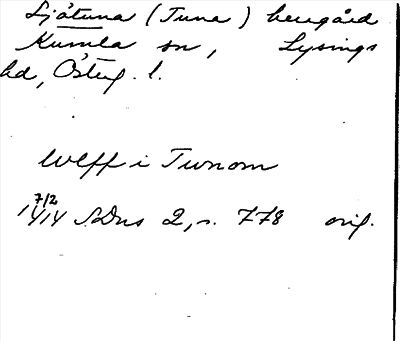 Sjötuna (Tuna) herrgård
Kumla sn, Lysings
hd, Östug. l.
Uleff i Tunom
7/2
1414 SDns 2, s. 778 orig.